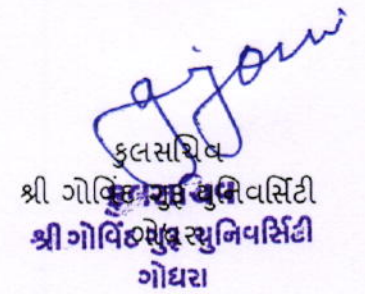 કુલસચિવ
શ્રી ગોવિંદ ગુરુ યુનિવર્સિટી
શ્રી ગોવિંદ ગુરુ યુનિવર્સિટી
ગોધરા